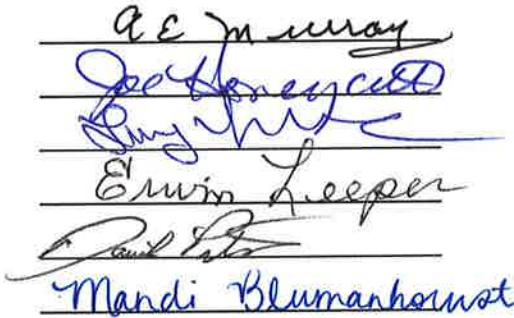 A E Murray
Joe Honeycutt
Erwin Leeper
David
Mandi Blumanhourst